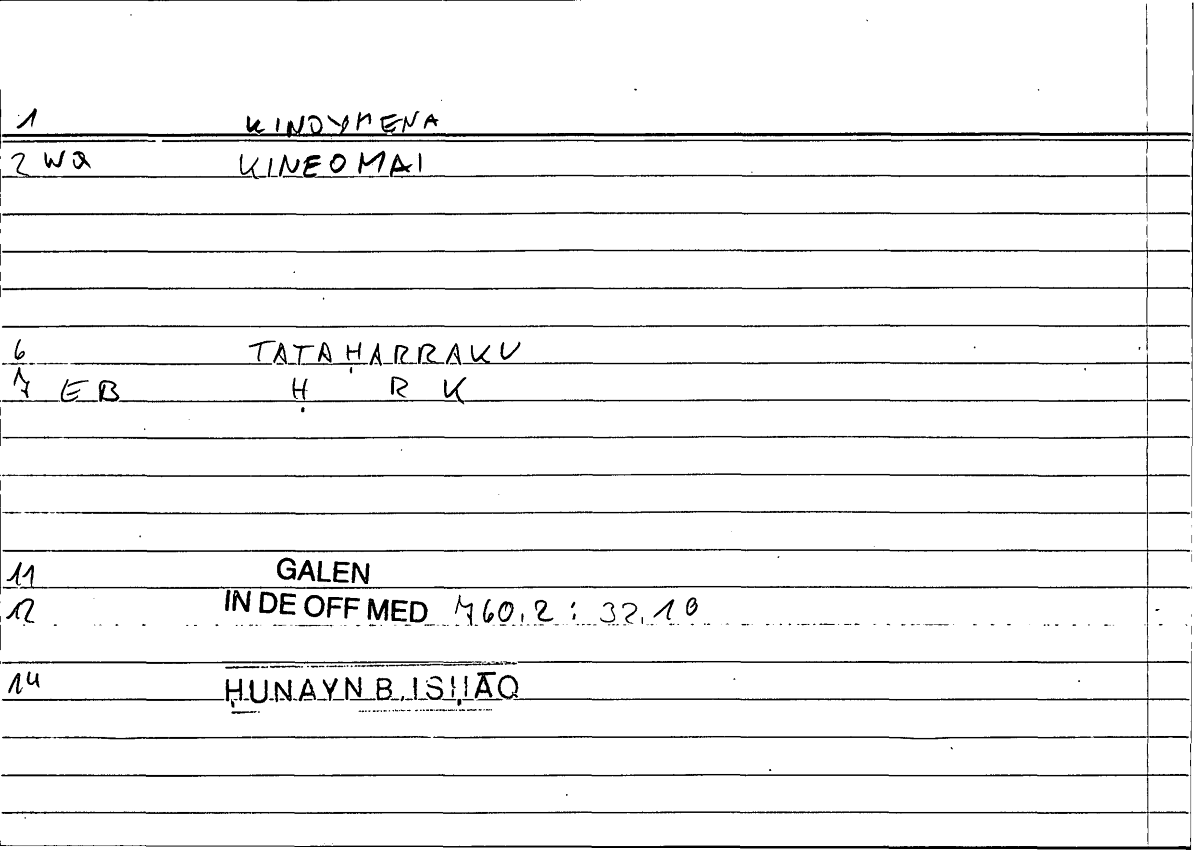 1 KINOYMENA
2 WQ KINEOMAI
6 TATAḤARRAKU
7 EB Ḥ R K
11 GALEN
12 IN DE OFF MED 760.2 : 32.10
14 ḤUNAYN B. ISḤĀQ